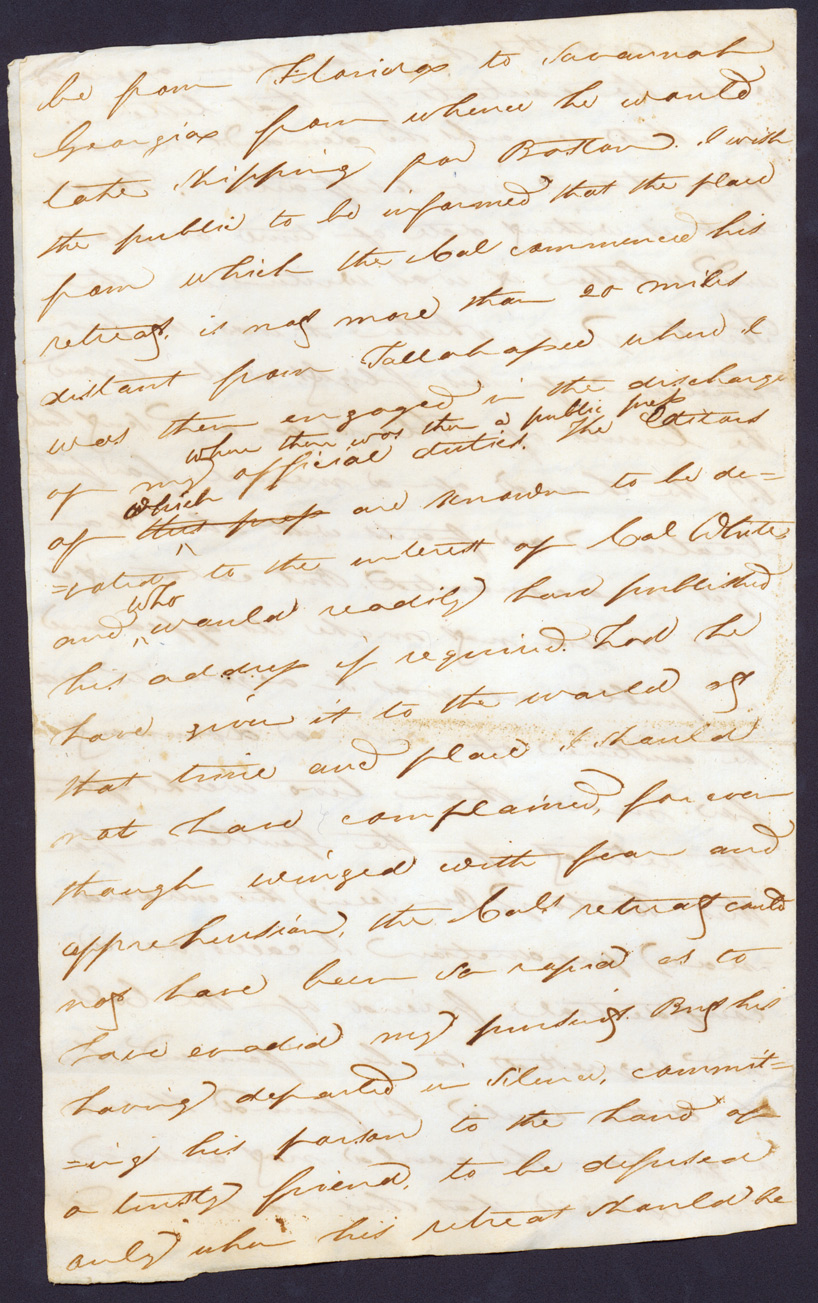 be from Florida to Savannah
Georgia from whence he would
take shipping for Boston. I wish
the public to be informed that the place
from which the Col commenced his
retreat, is not more than 20 miles
distant from Tallahassee where I
was then engaged in the discharge
of my official duties. The Editors
where there was then a public press
of which this press are known to be de=
=voted to the interest of Col White
and who would readily have published
his address if required. Had he
have given it to the world at
that time and place I should
not have complained, for even
though winged with fear and
apprehension, the Cols retreat could
not have been so rapid as to
have evaded my pursuit. But his
having departed in silence, committ=
=ing his poison to the hand of
a trusty friend, to be defused
only when his retreat should be